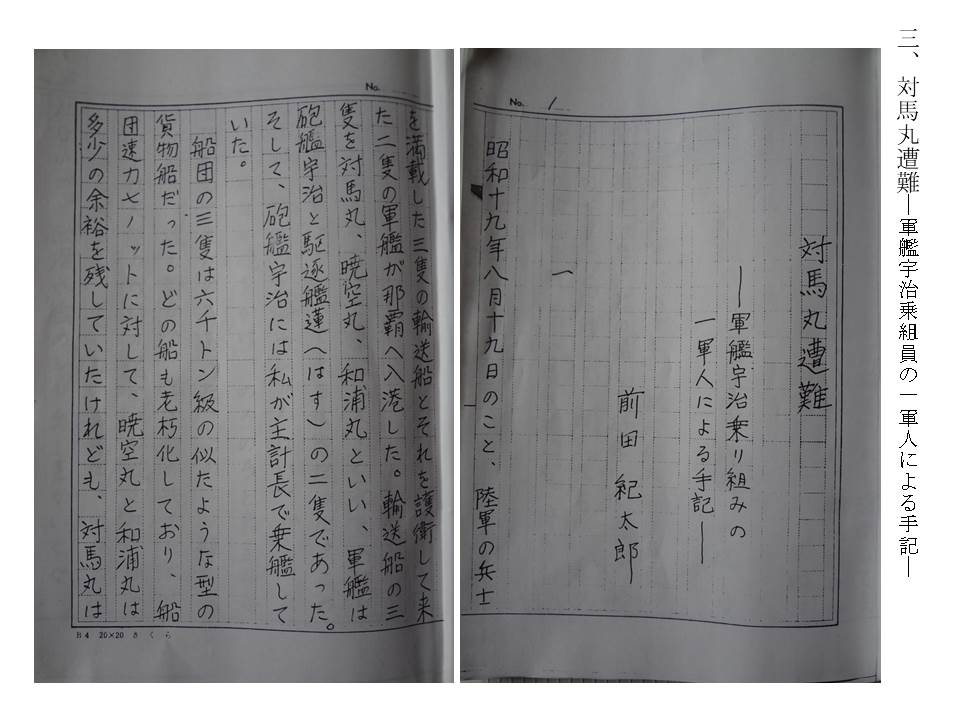 三、対馬丸遭難―軍艦宇治乗組員の一軍人による手記―
No. 1
対馬丸遭難
―軍艦宇治乗り組みの
一軍人による手記―
前田紀太郎
一
昭和十九年八月十九日のこと、陸軍の兵士
No.
を満載した三隻の輸送船とそれを護衛して来
た二隻の軍艦が那覇へ入港した。輸送船の三
隻を対馬丸、暁空丸、和浦丸といい、軍艦は
砲艦宇治と駆逐艦蓮(はす)の二隻であった。
そして、砲艦宇治には私が主計長で乗艦して
いた。
船団の三隻は六千トン級の似たような型の
貨物船だった。どの船も老朽化しており、船
団速力七ノットに対して、暁空丸と和浦丸は
多少の余裕を残していたけれども、対馬丸は
B4 20×20 さくら